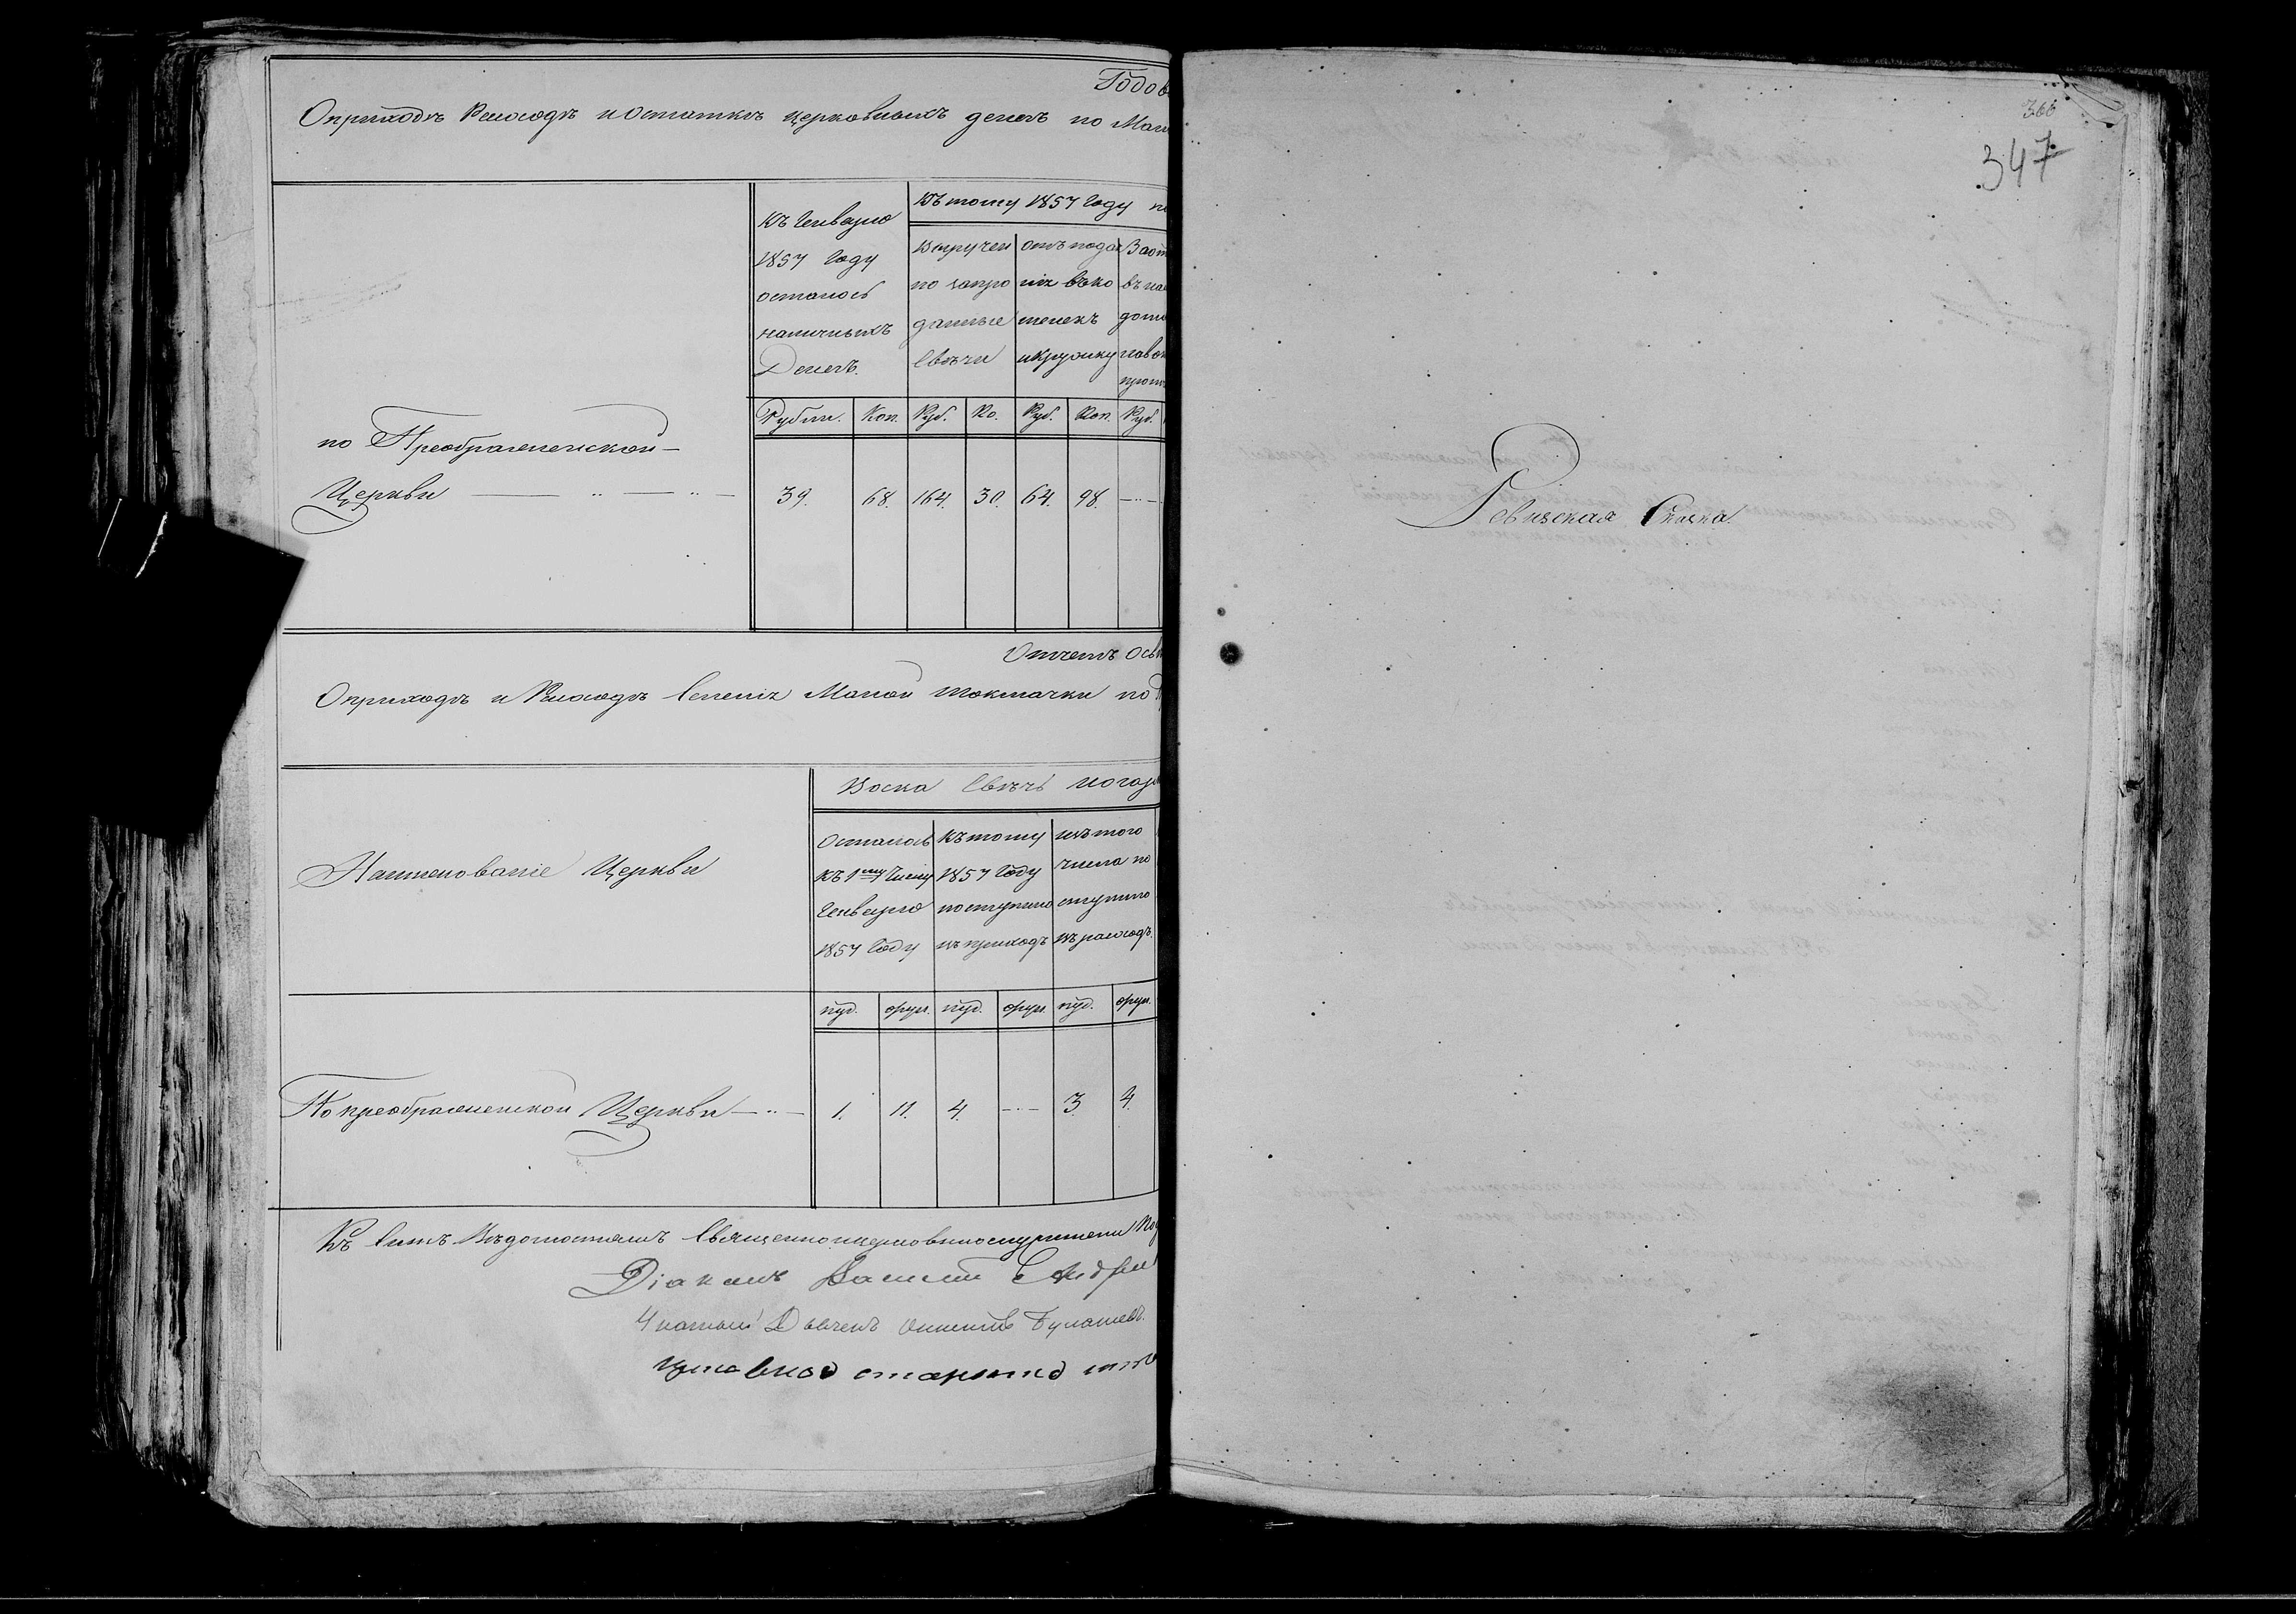 Годов
О приходѣ Расходѣ и Остаткѣ церковныхъ денегъ по Мал
Къ Генварю
1857 Году
осталось
наличныхъ
Денегъ.
Къ тому 1857 Году по
Выручен
по запро
данные
Свѣчи
отъ подая
нія въ ко
шелекъ
и кружку
За от
въ на
дома
лавок
проч
Рубли. Коп. Руб. Ко. Руб. Коп. Руб.
по Преображенской —
Церкви 39. 68. 164. 30. 64. 98.
Отчетъ Осв
О приходѣ и Расходѣ Селенія Малой Токмачки по
Воска Свѣчь и огар
Наименованіе Церкви
Осталось
Къ 1му Числу
Генваря
1857 Году
Къ тому
1857 Году
поступило
въ приходъ
изъ того
числа по
ступило
въ расходъ.
пуд. фун. пуд. фун. пуд. фун.
По преображенской Церкви 1. 11. 4. 3. 4.
Къ Симъ Вѣдомостямъ Священноцерковнослужители
Діаконъ Василій Андре
Дьячекъ Булашевъ.
староста
366
347
Ревизская Сказка.